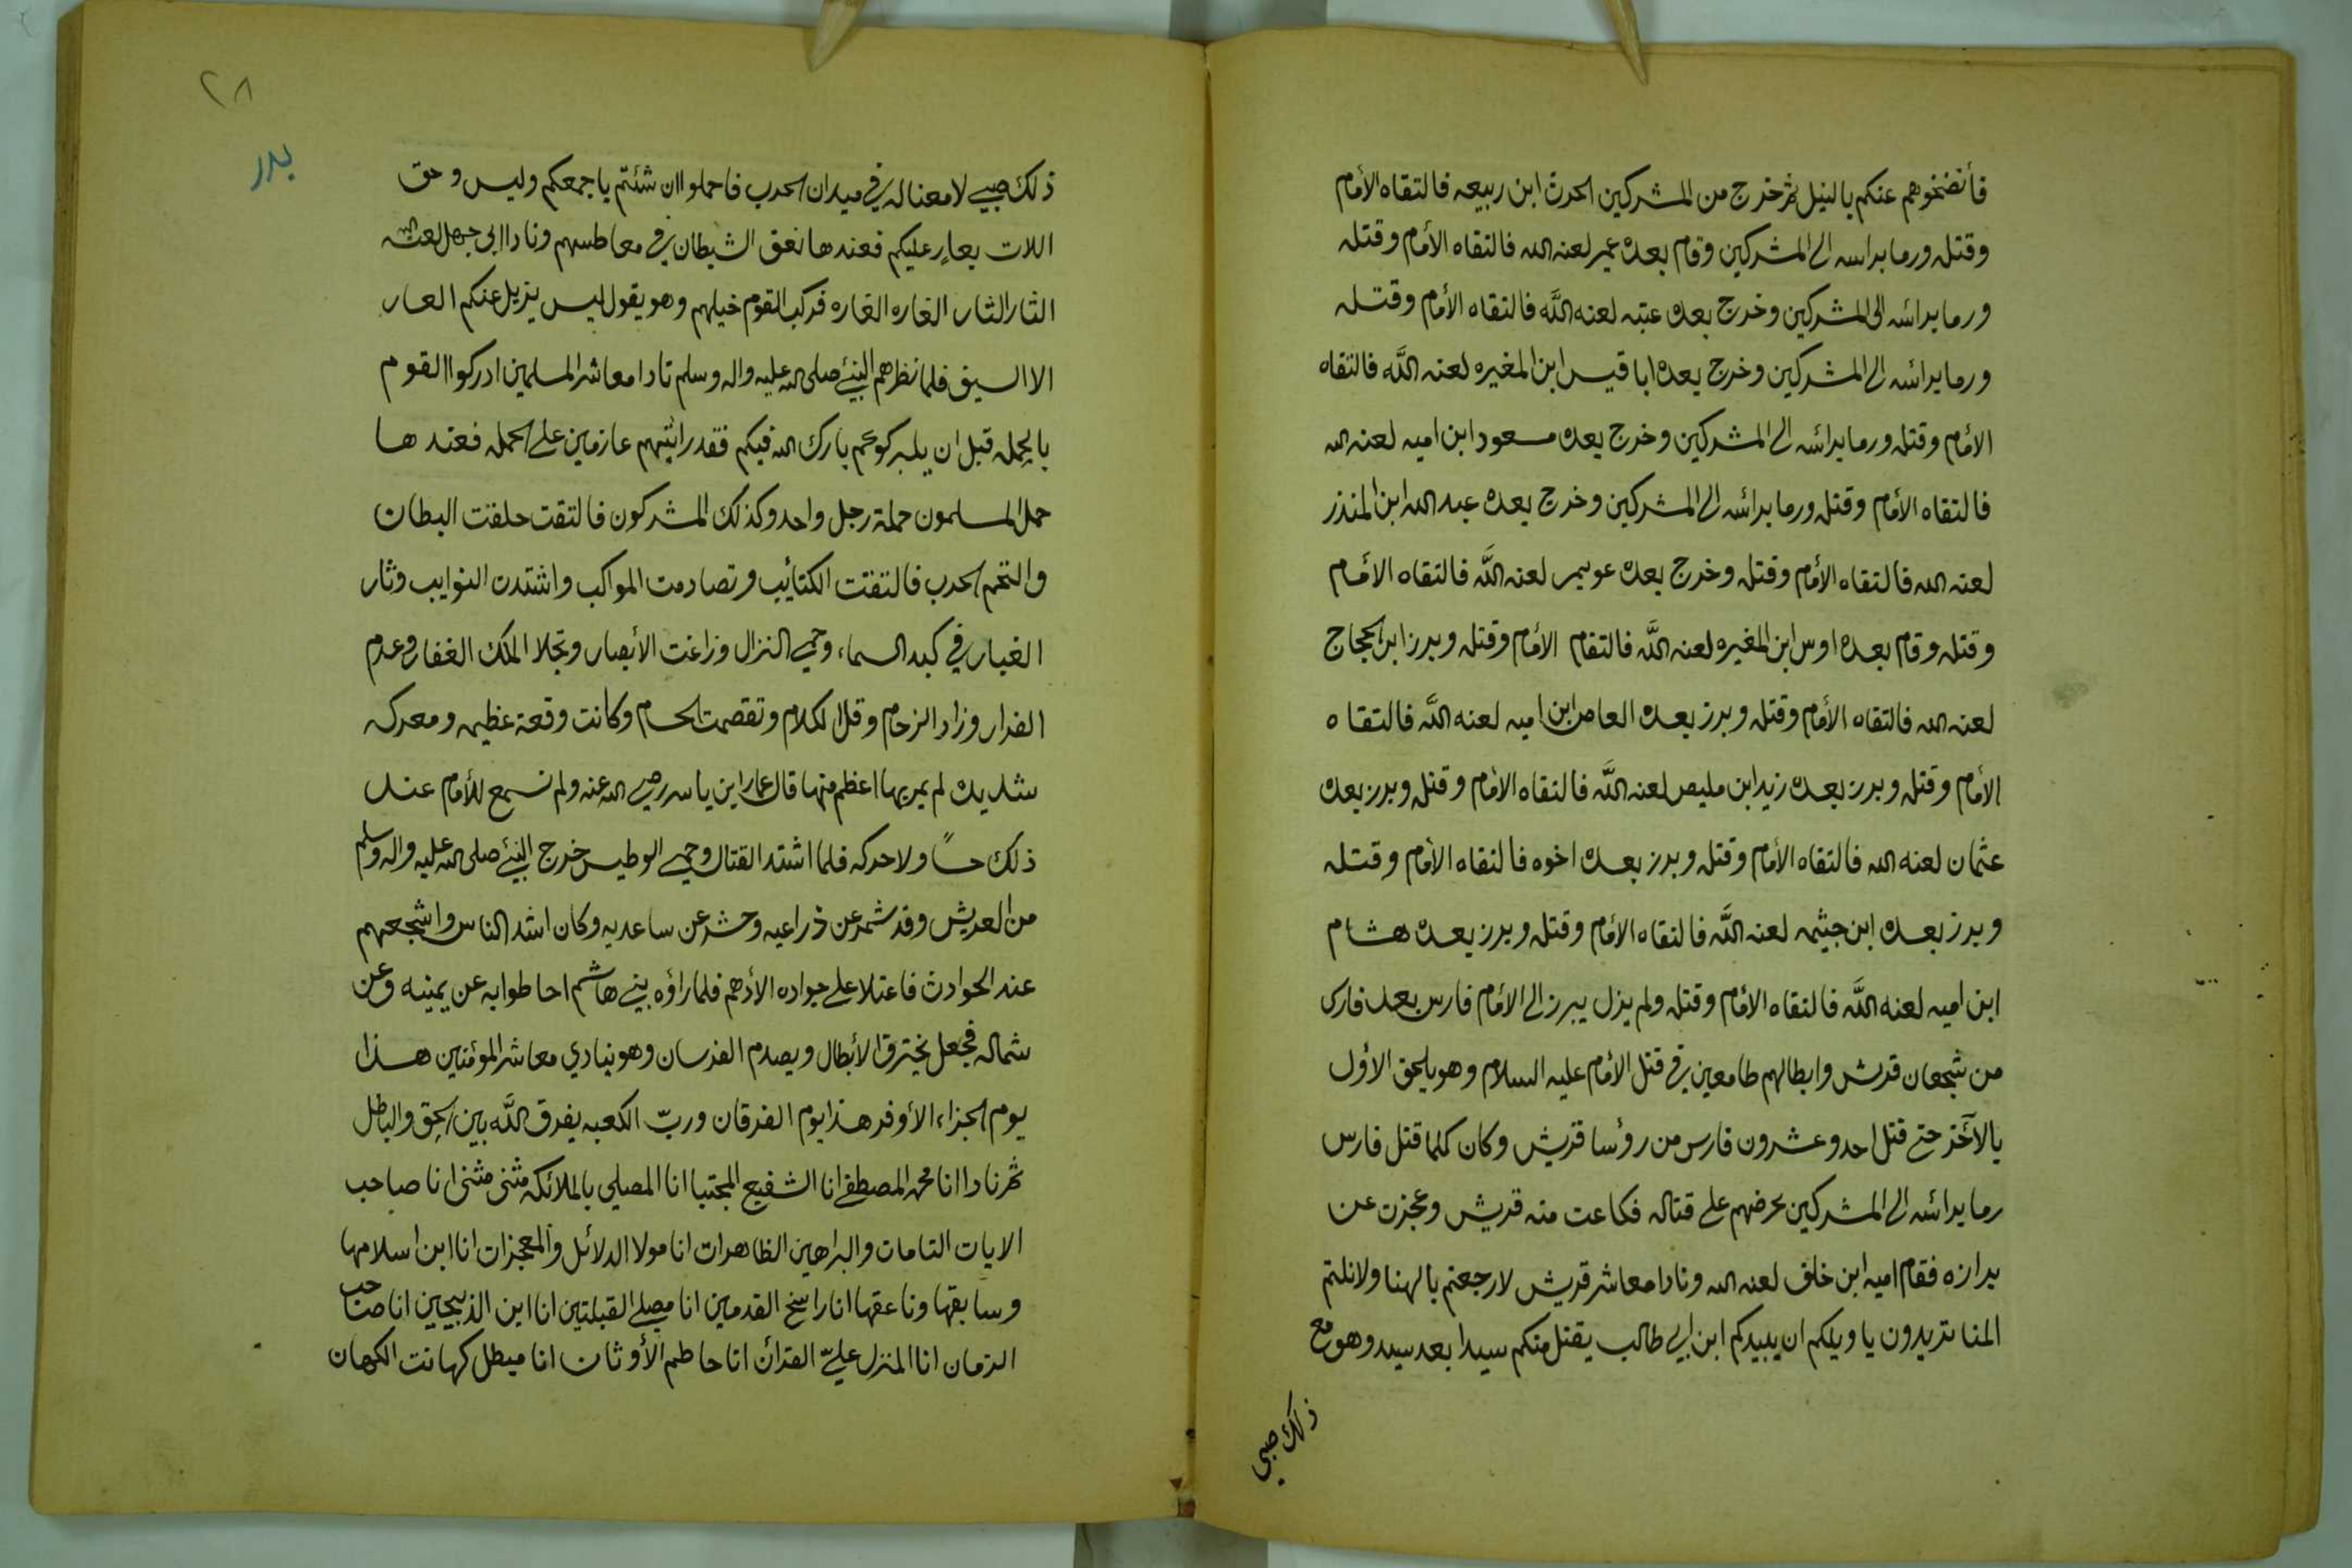 فأنضخوهم عنكم بالنبل ثم خرج من المشركين الحرث ابن ربيعه فالتقاه الأمام
وقتله ورما براسه الى المشركين وقام بعده عمير لعنه الله فالتقاه الأمام وقتله
ورما برائسه الى المشركين وخرج بعده عتبه لعنه اللَّه فالتقاه الأمام وقتله
ورما برائسه الى المشركين وخرج بعده ابا قيس ابن المغيره لعنه اللَّه فالتقاه
الأمام وقتله ورما برائسه الى المشركين وخرج بعده مسعود ابن اميه لعنه الله
فالتقاه الأمام وقتله ورما برائسه الى المشركين وخرج بعده عبد الله ابن المنذر
لعنه الله فالتقاه الأمام وقتله وخرج بعده عويمر لعنه اللَّه فالتقاه الأمام
وقتله وقام بعده اوس ابن المغيره لعنه اللَّه فالتقام الأمام وقتله وبرز ابن الحجاج
لعنه الله فالتقاه الأمام وقتله وبرز بعده العاص ابن اميه لعنه اللَّه فالتقاه
الأمام وقتله وبرز بعده زيد ابن مليص لعنه اللَّه فالتقاه الأمام وقتله وبرز بعده
عثمان لعنه الله فالتقاه الأمام وقتله وبرز بعده اخوه فالتقاه الأمام وقتله
وبرز بعده ابن جيثمه لعنه اللَّه فالتقاه الأمام وقتله وبرز بعده هشام
ابن اميه لعنه اللَّه فالتقاه الأمام وقتله ولم يزل يبرز الى الأمام فارس بعد فارس
من شجعان قريش وابطالهم طامعين في قتل الأمام عليه السلام وهو يلحق الأول
بالآخر حتى قتل احد وعشرون فارس من رؤسا قريش وكان كلما قتل فارس
رما برائسه الى المشركين يحرضهم على قتاله فكاعت منه قريش وعجزت عن
برازه فقام اميه ابن خلف لعنه الله ونادا معاشر قريش لا رجعتم بالهنا ولا نلتم
المنا تريدون يا ويلكم ان يبيدكم ابن ابي طالب يقتل منكم سيدا بعد سيد وهو مع
ذلك صبي
٢٨
بدر
ذلك صبي لا معنا له في ميدان الحرب فاحملوا ان شئتم باجمعكم وليس وحق
اللات بعارٍ عليكم فعندها نعق الشيطان في معاطسهم ونادا ابي جهل لعنه الله
الثار الثار الغاره الغاره فركب القوم خيلهم وهو يقول ليس يزيل عنكم العار
الا السيف فلما نظرهم النبيء صلى الله عليه واله وسلم نادا معاشر المسلمين ادركوا القوم
بالحمله قبل ان يدركوكم بارك الله فيكم فقد رائيتهم عازمين على الحمله فعندها
حمل المسلمون حملة رجل واحد وكذلك المشركون فالتقت حلقت البطان
والتحم الحرب فالتفتت الكتائيب وتصادمت المواكب واشتدت النوايب وثار
الغبار في كبد السماء وحمي النزال وزاغت الأبصار وتجلا الملك الغفار وعدم
الفرار وزاد الزحام وقل الكلام وتقصمت الحسام وكانت وقعة عظيمه ومعركه
شديده لم يمر بها اعظم منها قال عمار ابن ياسر رضي الله عنه ولم نسمع للأمام عند
ذلك حسًا ولا حركه فلما اشتد القتال وحمي الوطيس خرج النبيء صلى الله عليه واله وسلم
من العريش وقد شمر عن ذراعيه وحشر عن ساعديه وكان اشد الناس واشجعهم
عند الحوادث فاعتلا على جواده الأدهم فلما راؤه بني هاشم احاطوا به عن يمينه وعن
شماله فجعل يخترق الأبطال ويصدم الفرسان وهو ينادي معاشر المؤمنين هذا
يوم الجزاء الأوفر هذا يوم الفرقان وربّ الكعبه يفرق اللَّه بين الحق والباطل
ثم نادا انا محمد المصطفى انا الشفيع المجتبا انا المصلي بالملائكه مثنى مثنى انا صاحب
الايات التامات والبراهين الظاهرات انا مولا الدلائل والمعجزات انا ابن اسلامها
وسابقها وناعقها انا راسخ القدمين انا مصلي القبلتين انا ابن الذبيحين انا صاحب
الزمان انا المنزل عليّ القرائن انا حاطم الأوثان انا مبطل كهانت الكهان